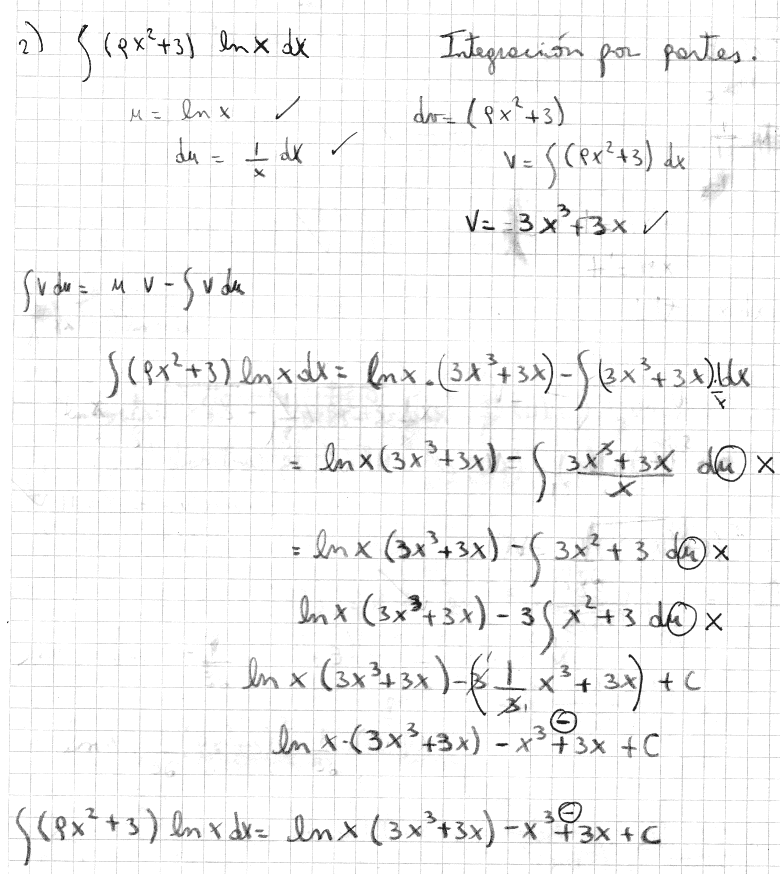 2) ∫ (9x²+3) ln x dx Integración por partes.
u = ln x ✓ dv = (9x²+3)
du = 1/x dx ✓ v = ∫ (9x²+3) dx
v = = 3x³+3x ✓
∫ v du = u v - ∫ v du
∫ (9x²+3) ln x dx = ln x . (3x³+3x) - ∫ (3x³+3x) . 1/x dx
= ln x (3x³+3x) - ∫ (3x³+3x)/x du x
= ln x (3x³+3x) - ∫ 3x²+3 du x
ln x (3x³+3x) - 3 ∫ x²+3 du x
ln x (3x³+3x) - (3 1/3 x³ + 3x) + C
ln x · (3x³+3x) - x³ + 3x + C
∫ (9x²+3) ln x dx = ln x (3x³+3x) - x³ + 3x + C